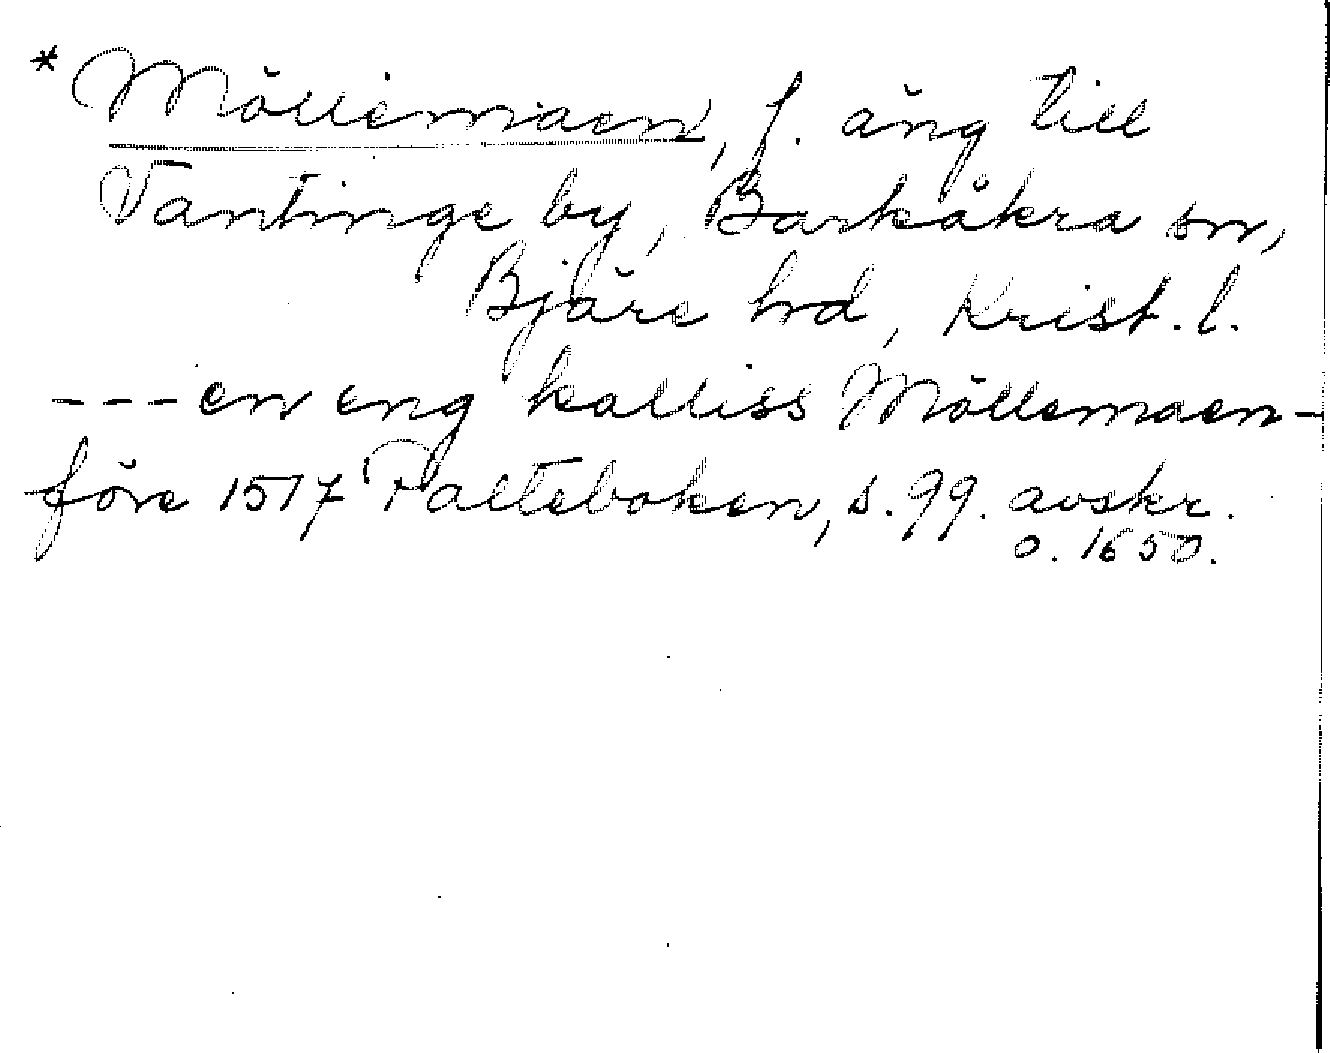 * Möllemaen, f. äng till
Vantinge by, Barkåkra sn,
Bjäre hd, Krist. l.
--- en eng kalliss Möllemaen -
före 1517 Palteboken, s. 99. avskr.
o. 1650.